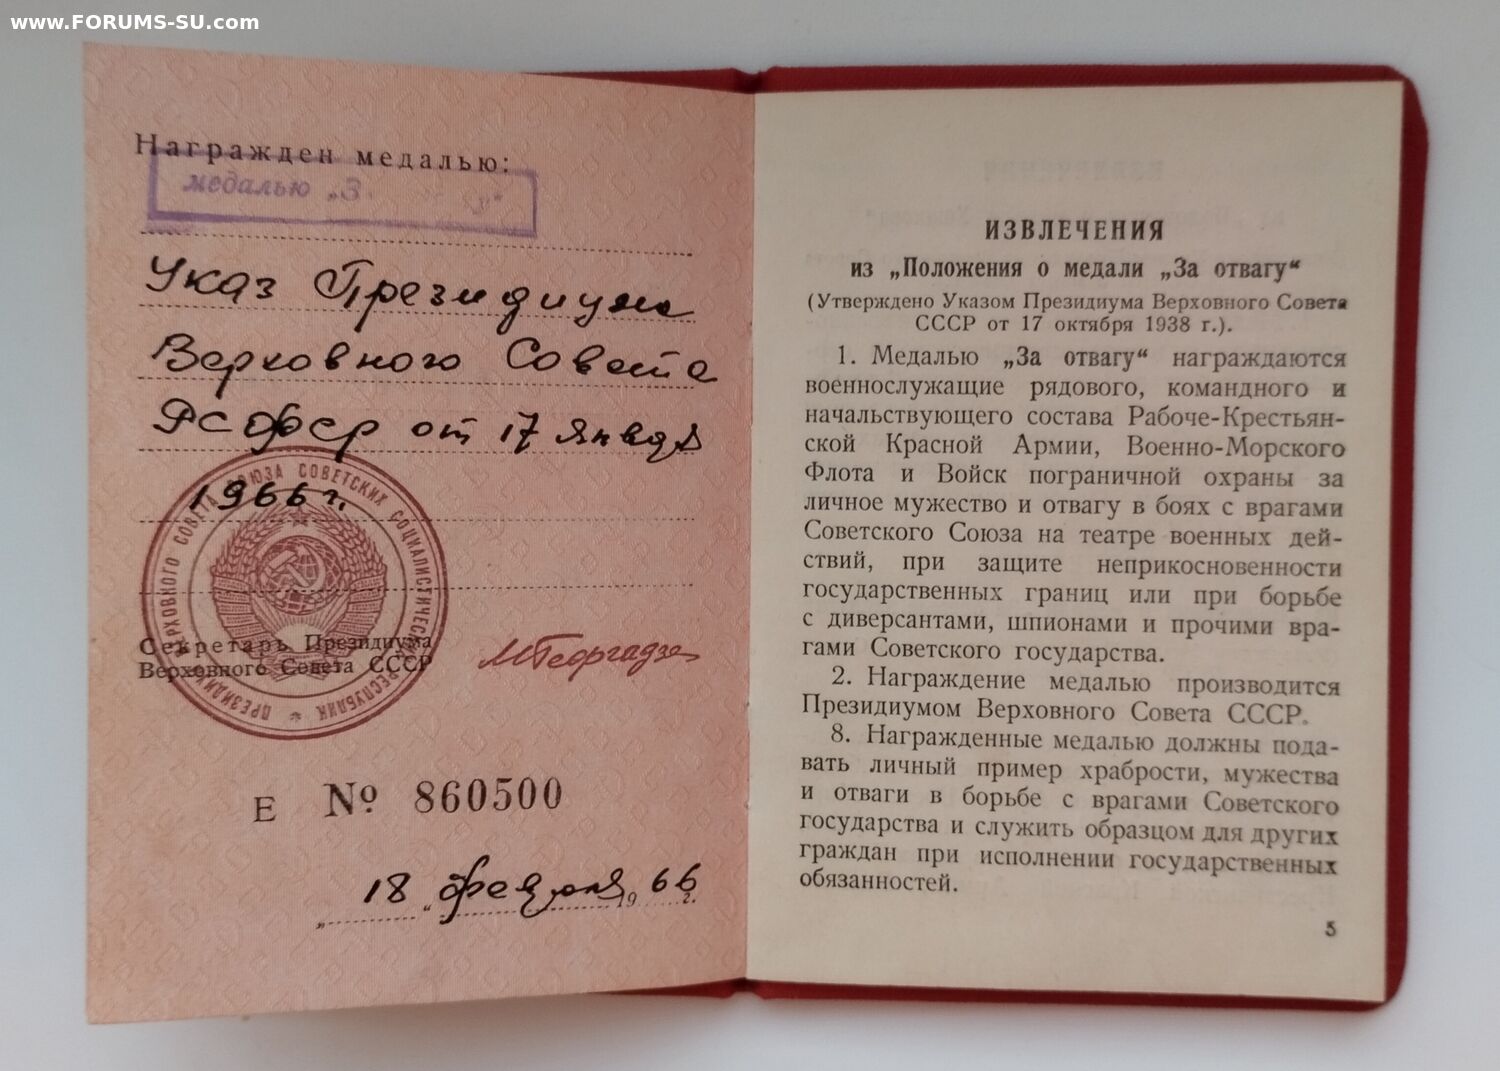 www.FORUMS-SU.com
Награжден медалью:
медалью „З
Указ Президиума
Верховного Совета
РСФСР от 17 января
1966 г.
ПРЕЗИДИУМ ВЕРХОВНОГО СОВЕТА СОЮЗА СОВЕТСКИХ СОЦИАЛИСТИЧЕСКИХ РЕСПУБЛИК
Секретарь Президиума
Верховного Совета СССР
МГеоргадзе
Е № 860500
„18“ февраля 1966 г.
ИЗВЛЕЧЕНИЯ
из „Положения о медали „За отвагу“
(Утверждено Указом Президиума Верховного Совета
СССР от 17 октября 1938 г.).
1. Медалью „За отвагу“ награждаются
военнослужащие рядового, командного и
начальствующего состава Рабоче-Крестьян-
ской Красной Армии, Военно-Морского
Флота и Войск пограничной охраны за
личное мужество и отвагу в боях с врагами
Советского Союза на театре военных дей-
ствий, при защите неприкосновенности
государственных границ или при борьбе
с диверсантами, шпионами и прочими вра-
гами Советского государства.
2. Награждение медалью производится
Президиумом Верховного Совета СССР.
8. Награжденные медалью должны пода-
вать личный пример храбрости, мужества
и отваги в борьбе с врагами Советского
государства и служить образцом для других
граждан при исполнении государственных
обязанностей.
5